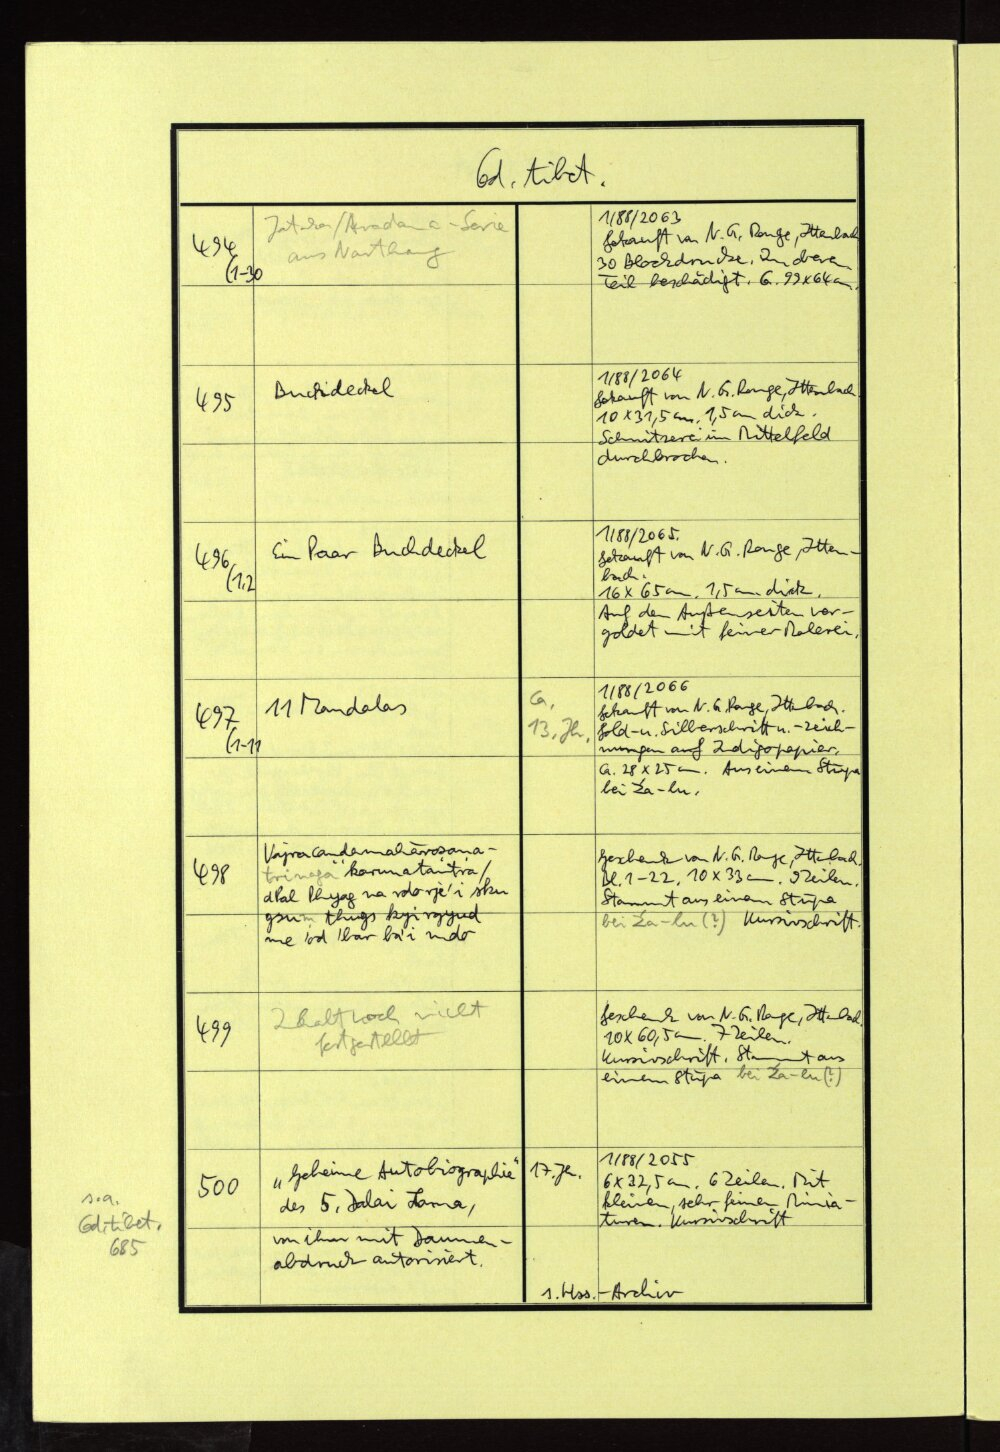 Cod. tibet.
494
(1-30
Jataka/Avadana-Serie
aus Narthang
1/88/2063
Gekauft von N. G. Ronge, Ittenbach
30 Blockdrucke. Zu deren
Teil beschädigt. Ca. 99x64cm.
495
Buchdeckel
1/88/2064
Gekauft von N. G. Ronge, Ittenbach.
10 x 31,5 cm, 1,5 cm dick.
Schnitzerei im Mittelfeld
durchbrochen.
496
(1,2
Ein Paar Buchdeckel
1/88/2065.
Gekauft von N. G. Ronge, Itten-
bach.
16 x 65 cm. 1,5 cm dick.
Auf den Außenseiten ver-
goldet mit feiner Malerei.
497
(1-11
11 Mandalas
Ca.
13. Jh.
1/88/2066
Gekauft von N. G. Ronge, Ittenbach.
Gold- u. Silberschrift u. -zeich-
nungen auf Indigopapier.
Ca. 28 x 25 cm. Aus einem Stūpa
bei Źa-lu.
498
Vajracandamahārosana-
karunatantra/
dPal Phyag na rdo rje'i sku
gsum thugs kyi rgyud
me 'od 'bar ba'i mdo
Geschenk von N. G. Ronge, Ittenbach.
Bl. 1-22. 10 x 33 cm. 9 Zeilen.
Stammt aus einem Stūpa
bei Źa-lu (?) Kursivschrift.
499
Inhalt noch nicht
festgestellt
Geschenk von N. G. Ronge, Ittenbach.
10 x 60,5 cm. 7 Zeilen.
Kursivschrift. Stammt aus
einem Stūpa bei Źa-lu (?)
s.a.
Cod. tibet.
685
500
„Geheime Autobiographie"
des 5. Dalai Lama,
von ihm mit Daumen-
abdruck autorisiert.
17. Jh.
1/88/2055
6 x 32,5 cm. 6 Zeilen. Mit
kleinen, sehr feinen Minia-
turen. Kursivschrift
s. Hss.-Archiv